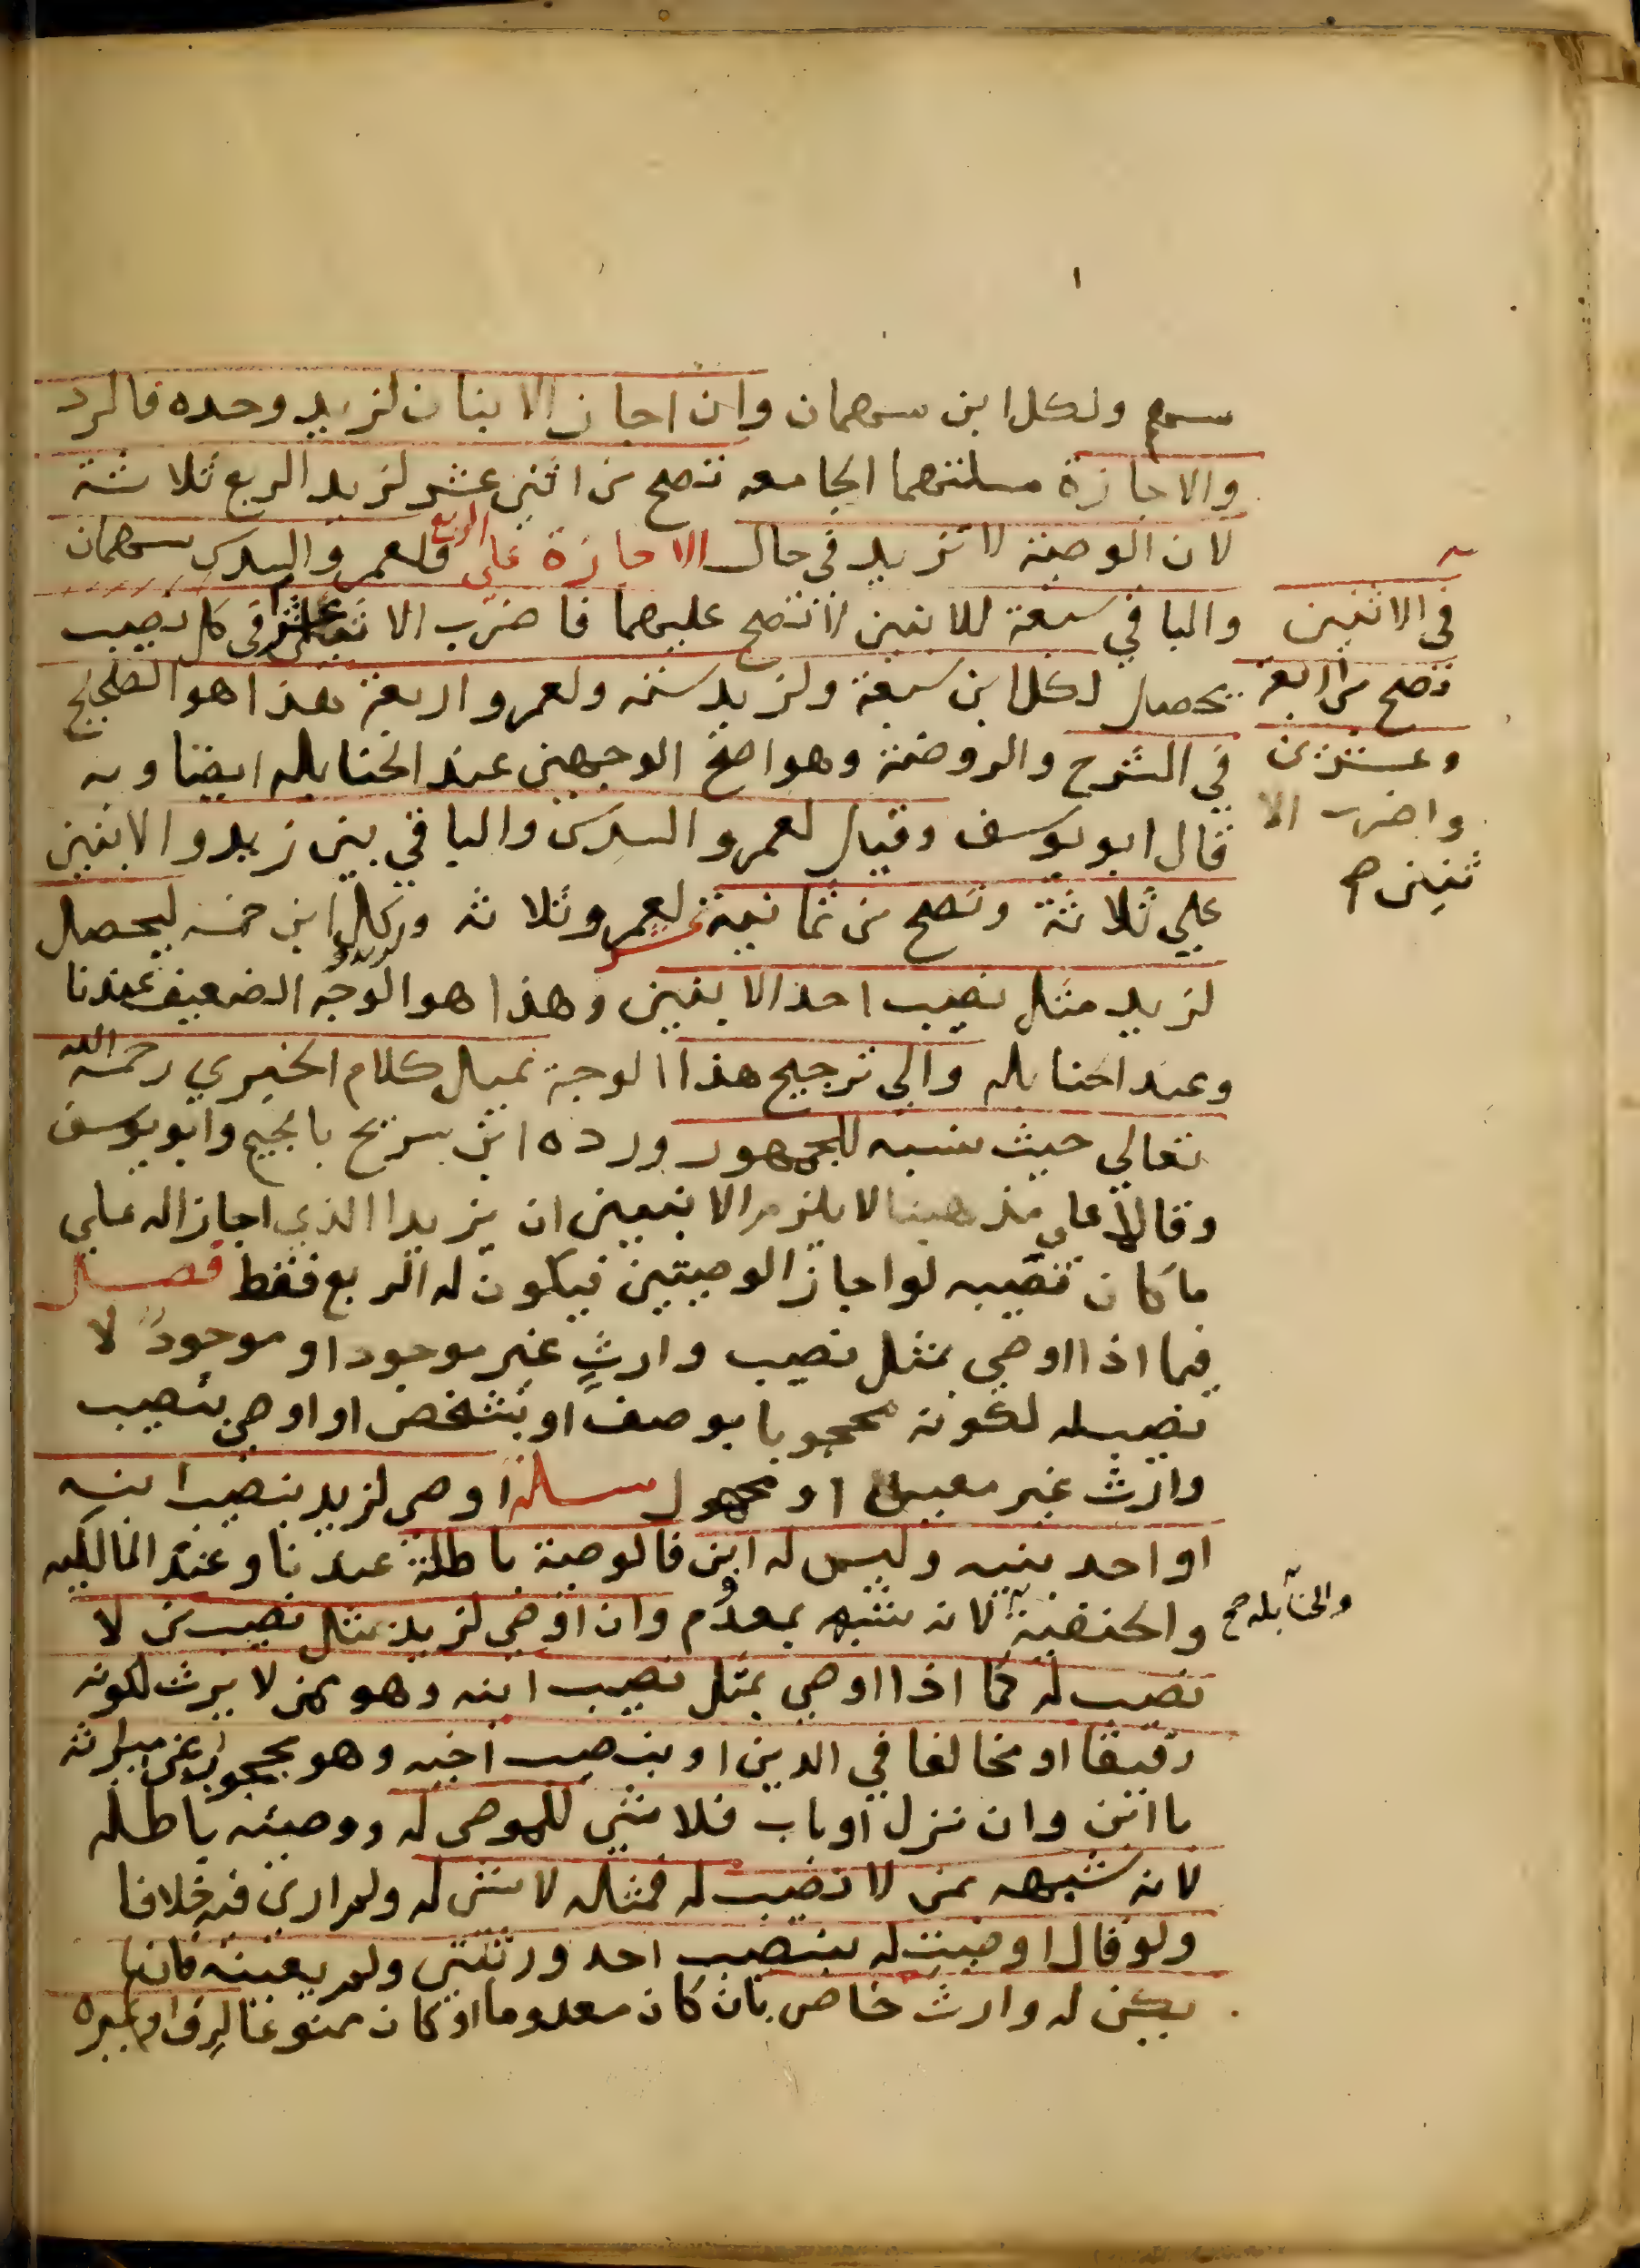 سهم ولكل ابن سهمان وان اجاز الابنان لزيد وحده فالرد
والاجازة مسلتهما الجامعه تصح من اثني عشر لزيد الربع ثلاثة
لان الوصية لا تزيد في حال الاجازة على الربع ولعمرو السدس سهمان
والباقي سبعة للابنين لا تصح عليهما فاضرب الاثني عشر في كل نصيب
في الاثنين
تصح من اربعة
وعشرين
واضرب الا
ثنين صح
يحصل لكل ابن سبعة ولزيد ستة ولعمرو اربعة هذا هو الصحيح
في الشرح والروضة وهو اصح الوجهين عند الحنابله ايضا وبه
قال ابو يوسف وقيل لعمرو السدس والباقي بين زيد والابنين
علي ثلاثة وتصح من ثمانية عشر لعمرو ثلاثه ولزيد ولكل ابن خمسه ليحصل
لزيد مثل نصيب احد الابنين وهذا هو الوجه الضعيف عندنا
وعند الحنابله والى ترجيح هذا الوجه يميل كلام الخبري رحمه الله
تعالي حيث نسبه للجمهور ورده ابن سريج بالجيم وابو يوسف
وقالا على مذهبنا لا يلزم الابنين ان يزيدا الذي اجازا له علي
ما كان نصيبه لو اجازا الوصيتين فيكون له الربع فقط فصل
فيما اذا اوصي بمثل نصيب وارثٍ غير موجود او موجود لا
نصيب له لكونه محجوبا بوصف او بشخص او اوصي بنصيب
وارث غير معين او مجهول مسلة اوصى لزيد بنصيب ابنه
او احد بنيه وليس له ابن فالوصية باطلة عندنا وعند المالكيه
والحنفية والحنابله صح لانه شبه بمعدوم وان اوصي لزيد بمثل نصيب من لا
نصيب له كما اذا اوصي بمثل نصيب ابنه وهو ممن لا يرث لكونه
رقيقا او مخالفا في الدين او بنصيب اخيه وهو محجوب عن ميراثه
با ابن وان نزل او باب فلا شي للموصى له ووصيته باطله
لانه شبهه بمن لا نصيب له فمثله لا شي له ولم ار في فيه خلافا
ولو قال اوصيت له بنصيب احد ورثتي ولم يعينه فان لم
يكن له وارث خاص بان كان معدوما او كان ممنوعا لرق او غيره